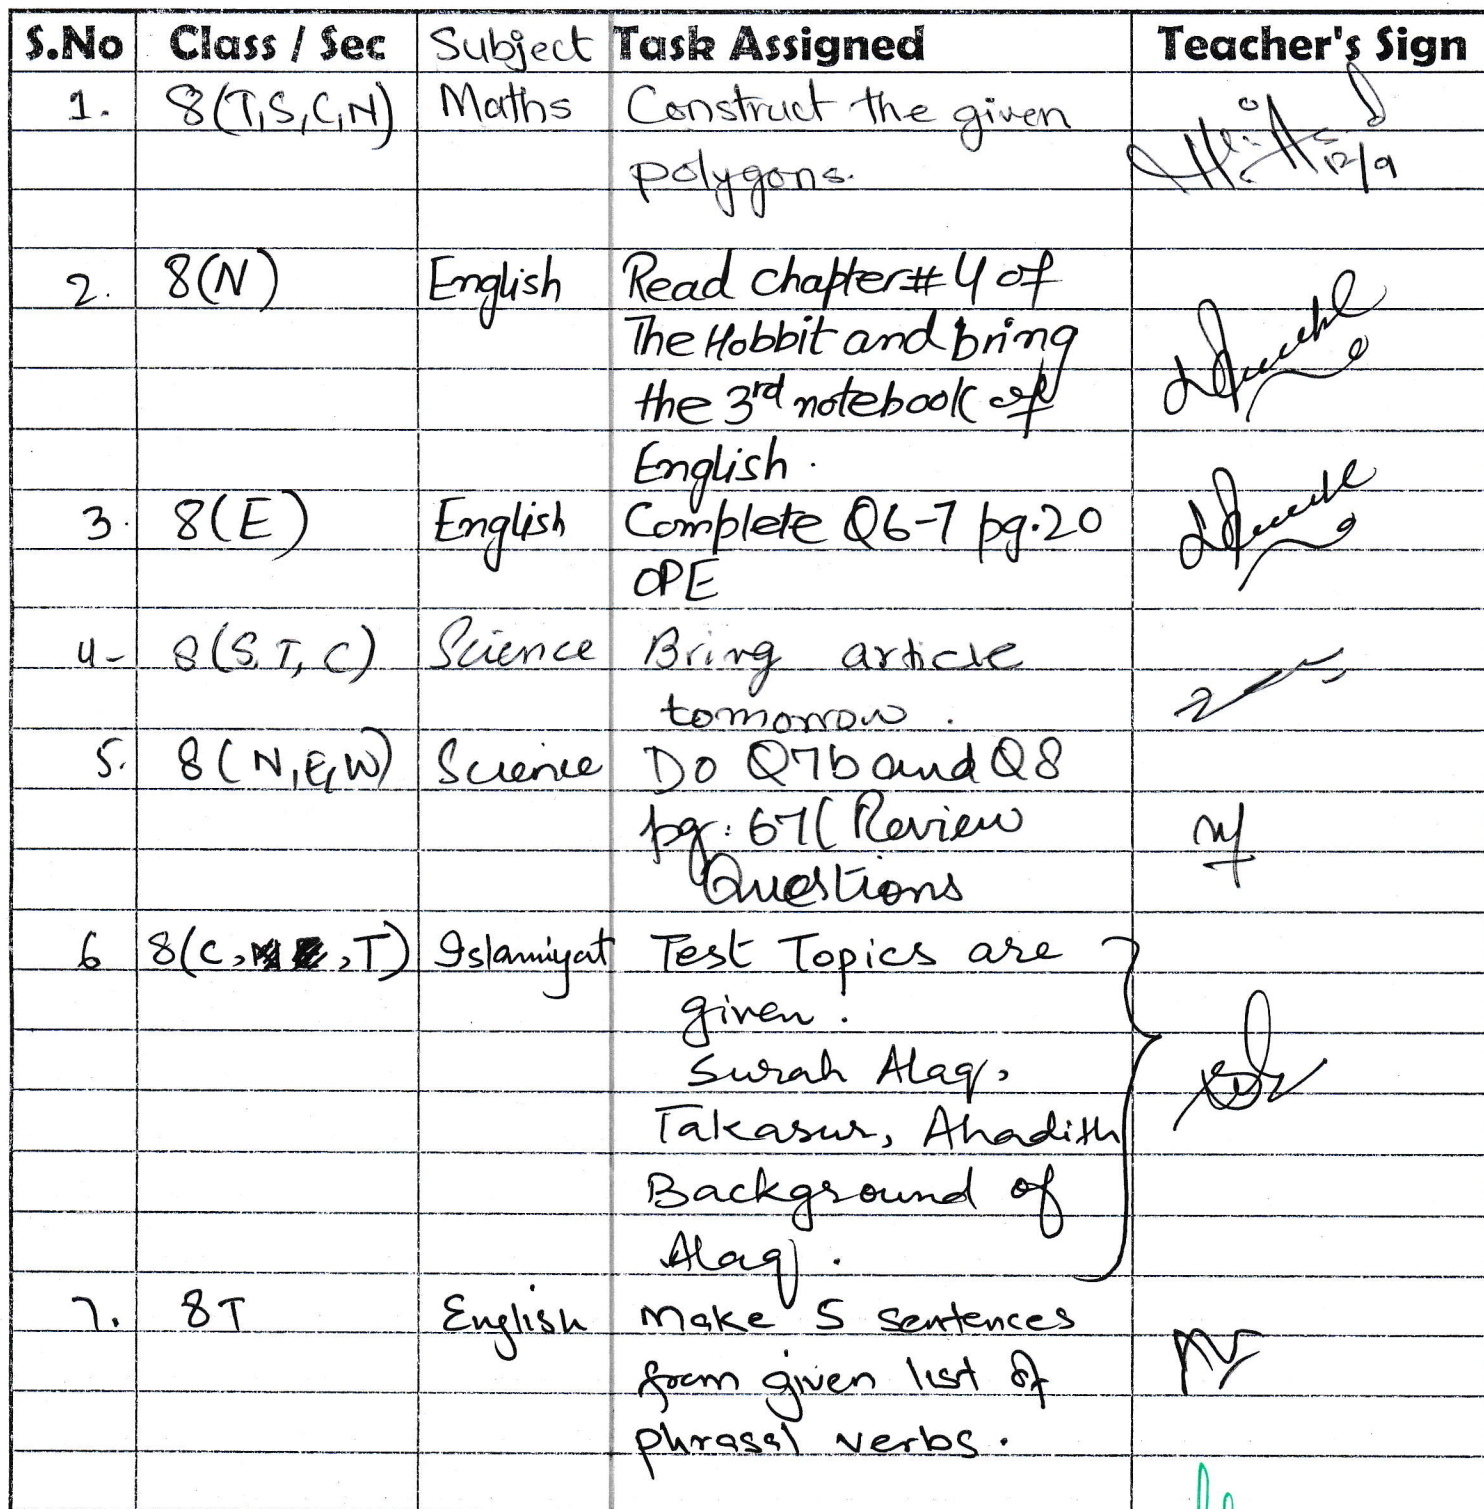 S.No Class / Sec Subject Task Assigned Teacher's Sign
1. 8(T,S,C,N) Maths Construct the given
polygons. 12/9
2. 8(N) English Read chapter# 4 of
The Hobbit and bring
the 3rd notebook of
English.
3. 8(E) English Complete Q6-7 pg.20
OPE
4- 8(S,T,C) Science Bring article
tomorrow.
5. 8(N,E,W) Science Do Q7b and Q8
pg. 67( Review
Questions
6 8(C, ,T) Islamiyat Test Topics are
given.
Surah Alaq,
Takasur, Ahadith
Background of
Alaq.
7. 8T English Make 5 sentences
from given list of
phrasal verbs.